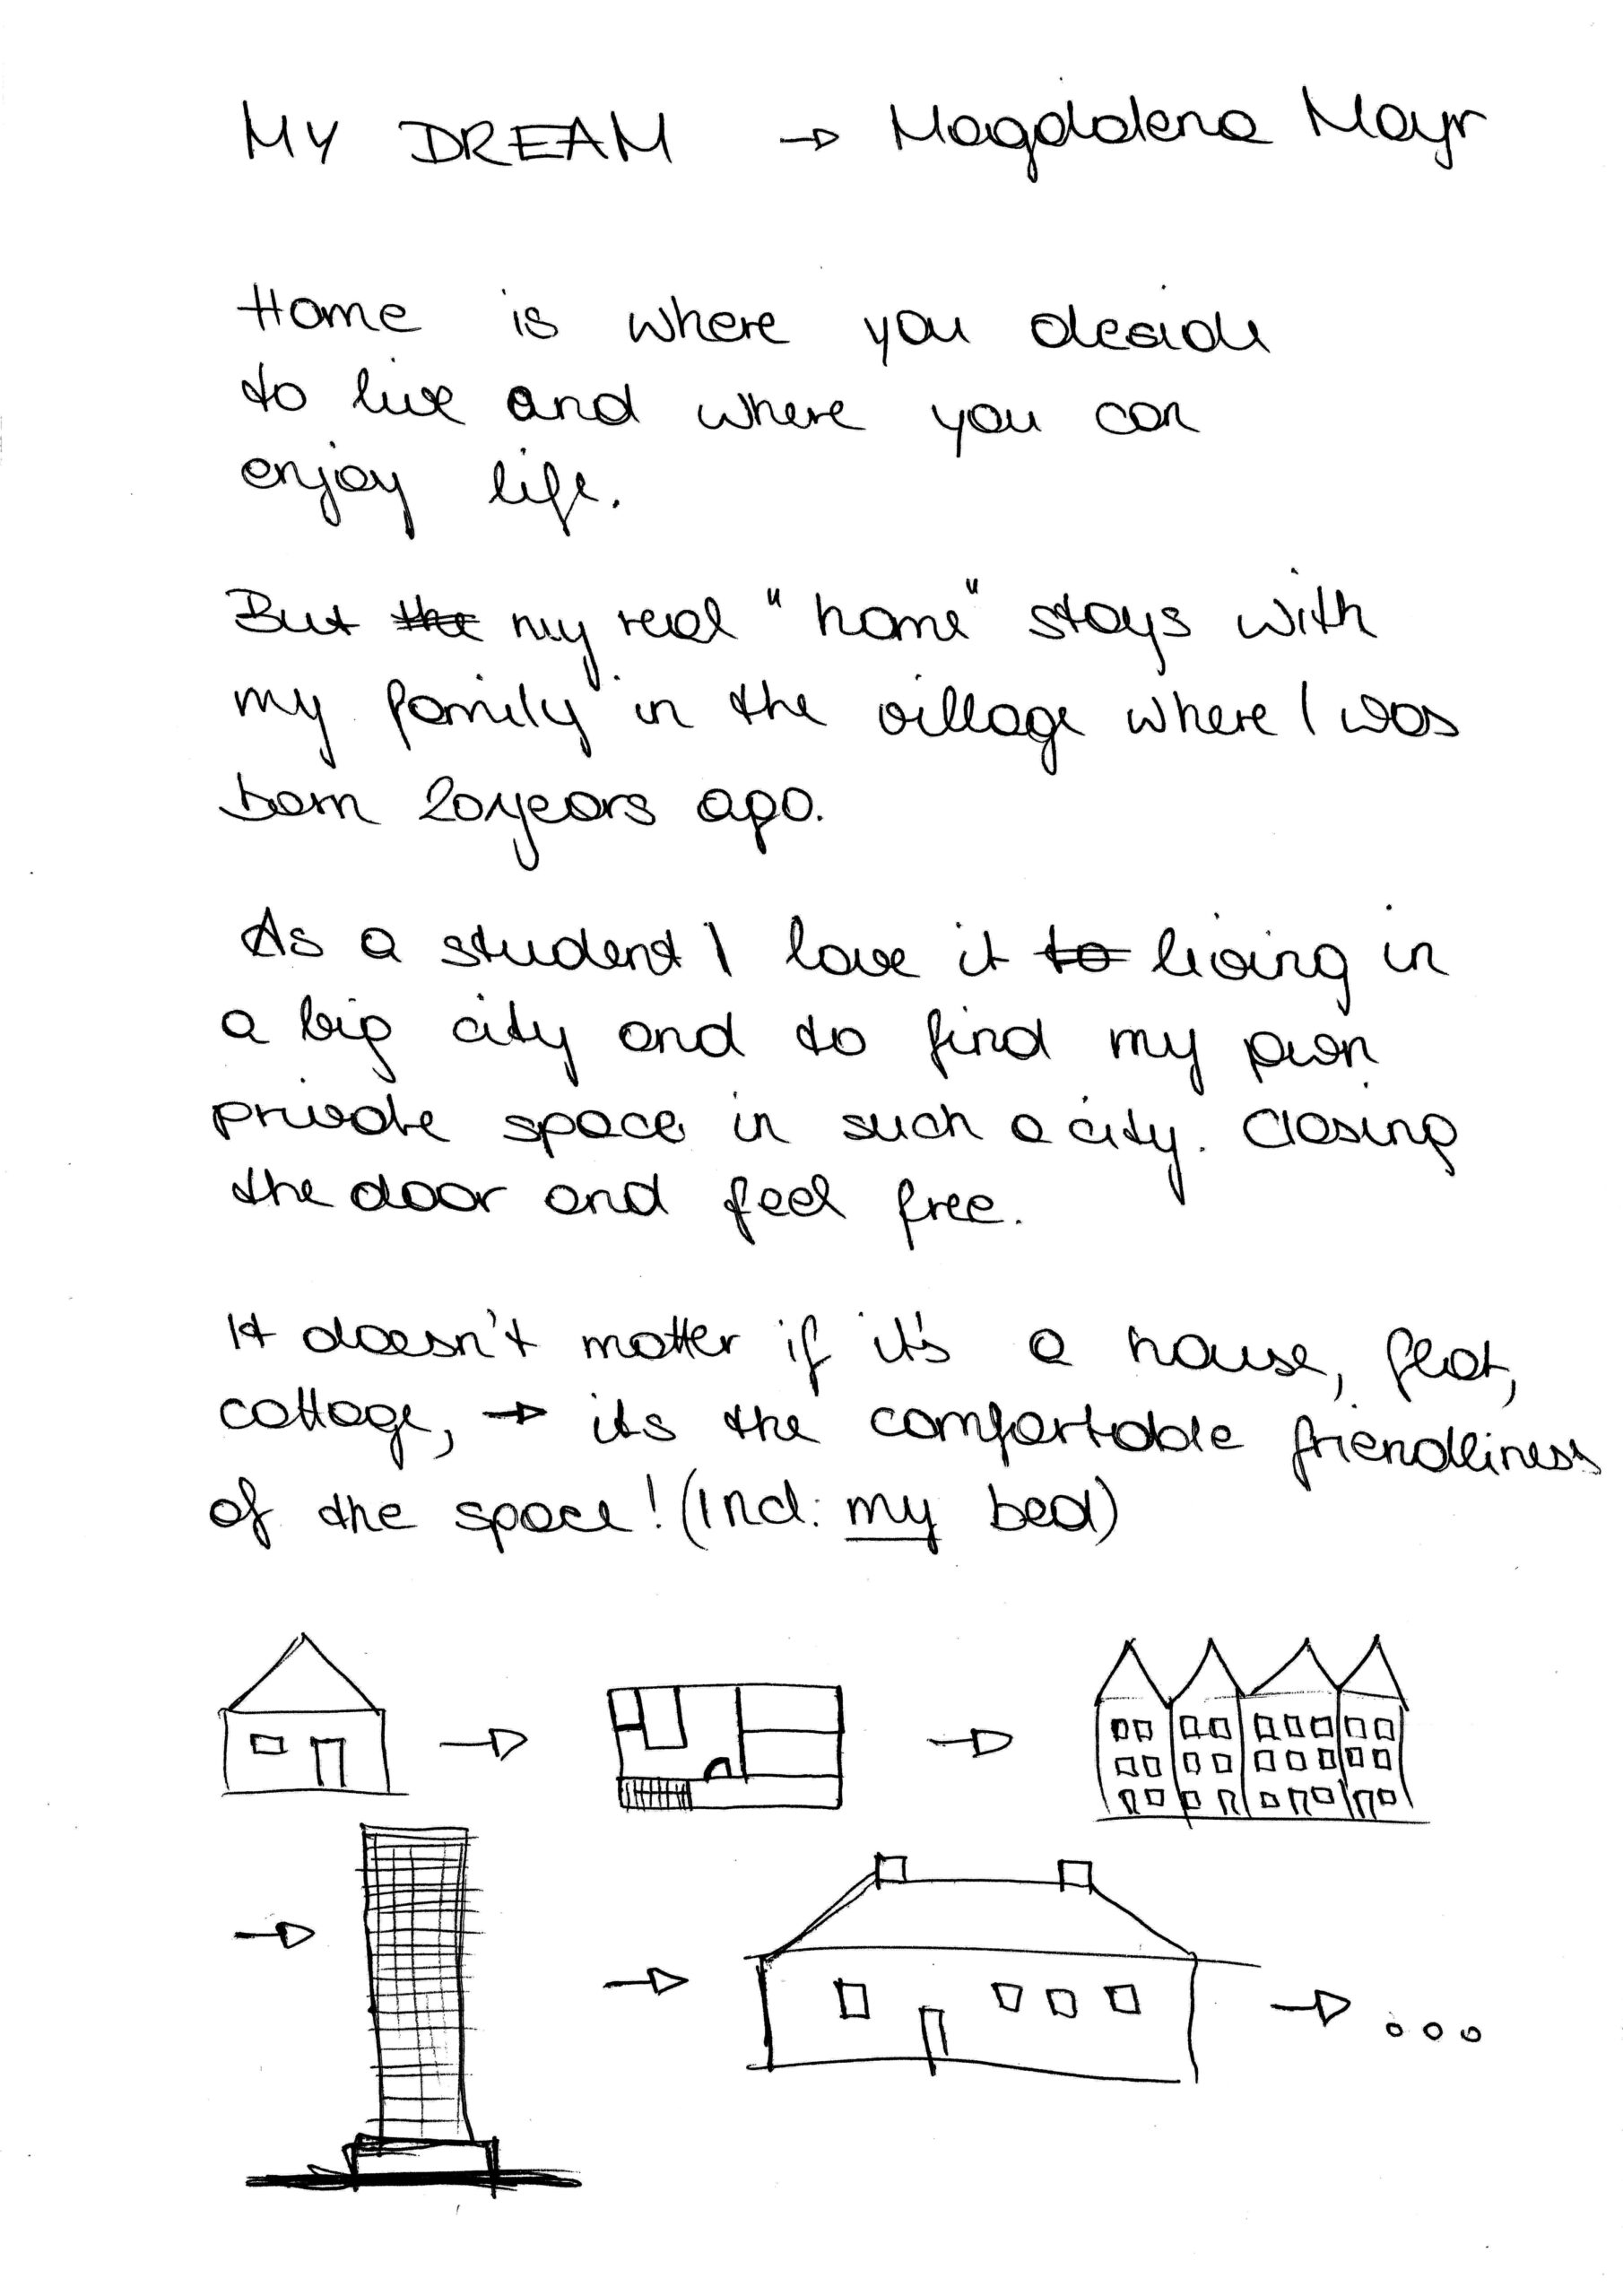 MY DREAM → Magdalena Mayr
Home is where you decide
to live and where you can
enjoy life.
But the my real "home" stays with
my family in the village where I was
born 20 years ago.
As a student I love it to living in
a big city and to find my own
private space in such a city. Closing
the door and feel free.
It doesn't matter if it's a house, flat,
cottage, → its the comfortable friendliness
of the space! (Incl: my bed)